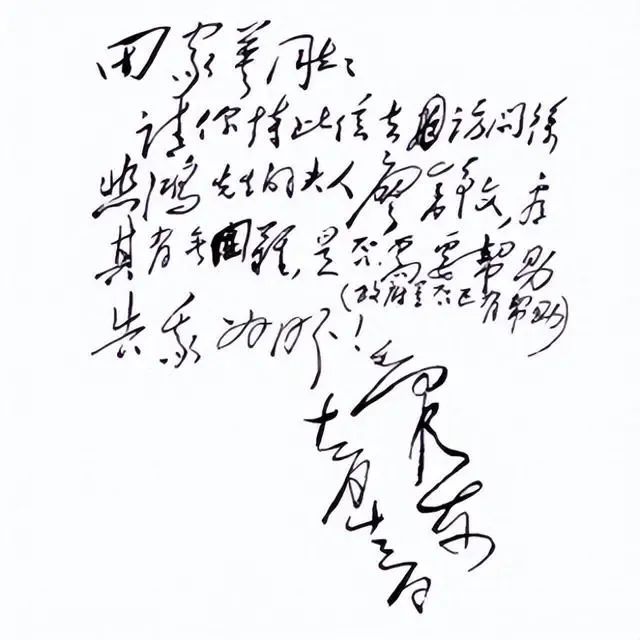 田家英同志:
请你持此信去访问徐
悲鸿先生的夫人廖静文,看
其有无困難,是否需要帮助
(政府是否已有帮助)
告我为盼!
毛泽东
十二月十三日